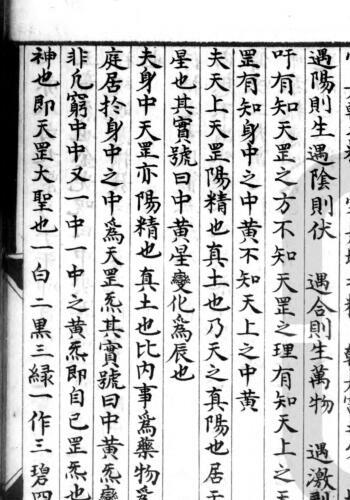 遇陽則生遇陰則伏　遇合則生萬物　遇激則
吁有知天罡之方不知天罡之理有知天上之
罡有知身中之中黄不知天上之中黄
夫天上天罡陽精也真土也乃天之真陽也居于
星也其實號曰中黄星變化爲辰也
夫身中天罡亦陽精也真土也比内事爲藥物爲
庭居於身中之中爲天罡炁其實號曰中黄炁變
非凢竅中中又一中一中之黄炁即自己罡炁也
神也即天罡大聖也一白二黒三緑一作三碧四